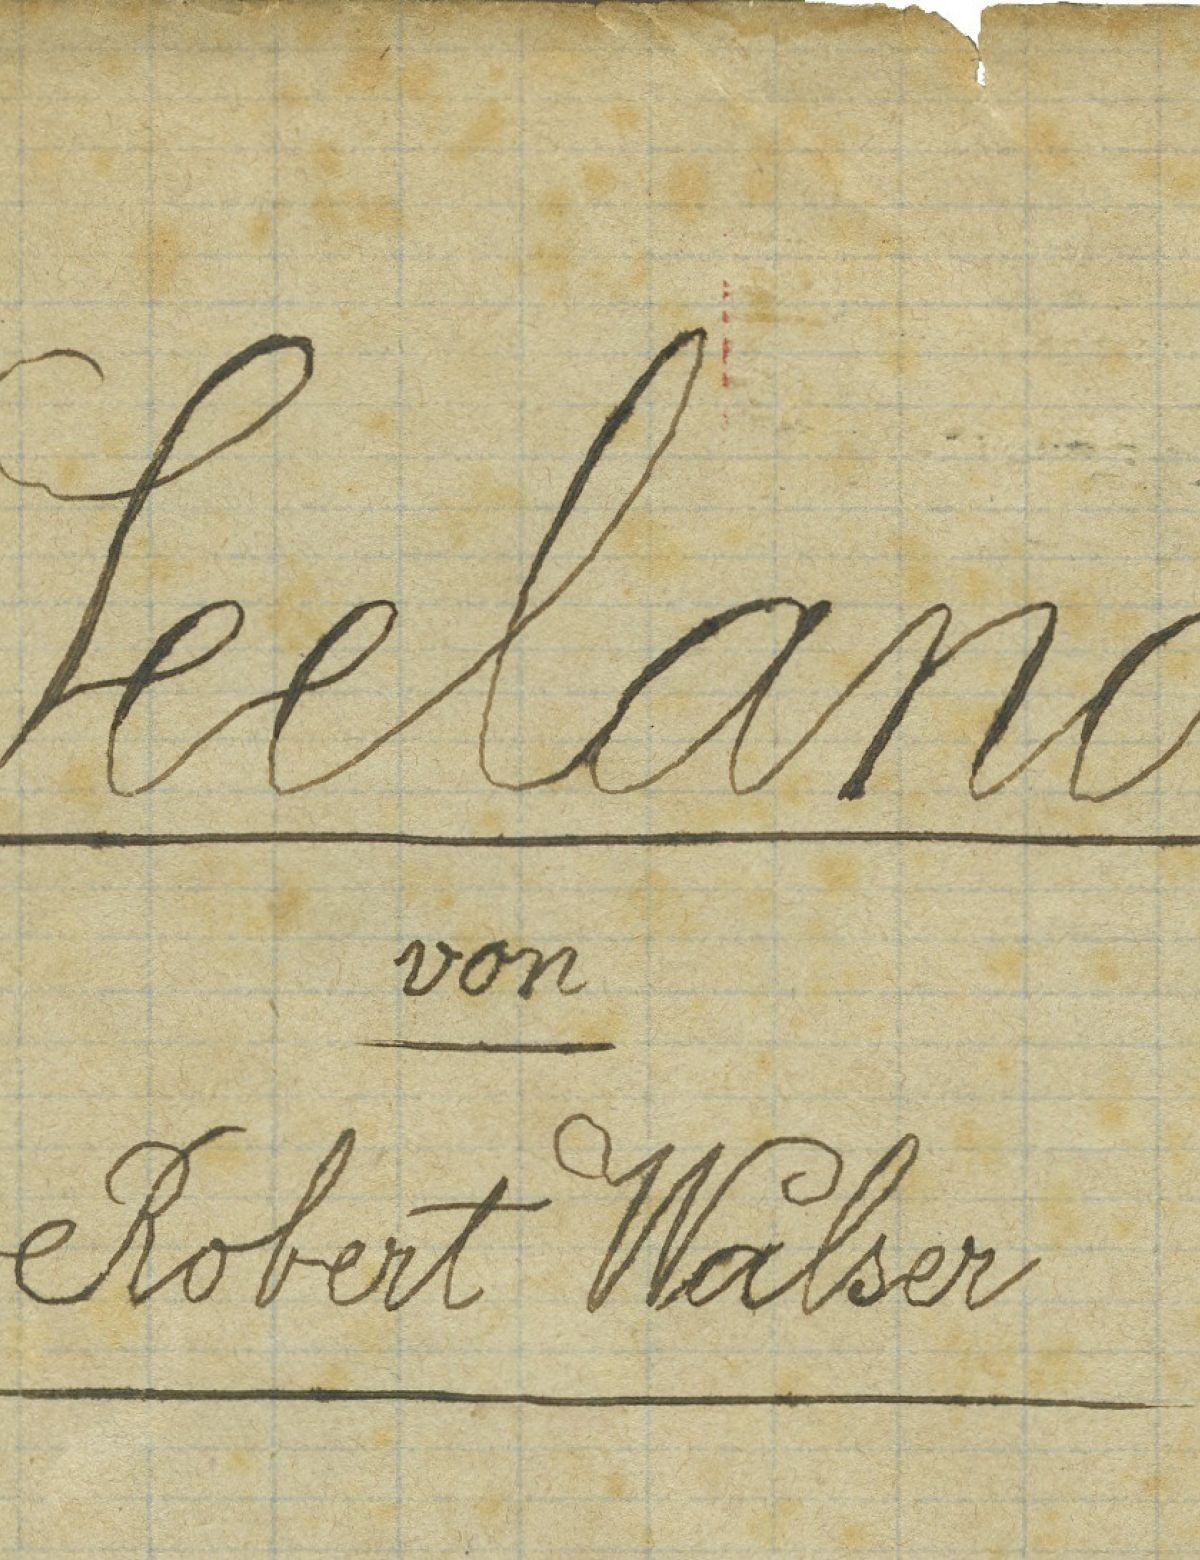 Seeland
von
Robert Walser